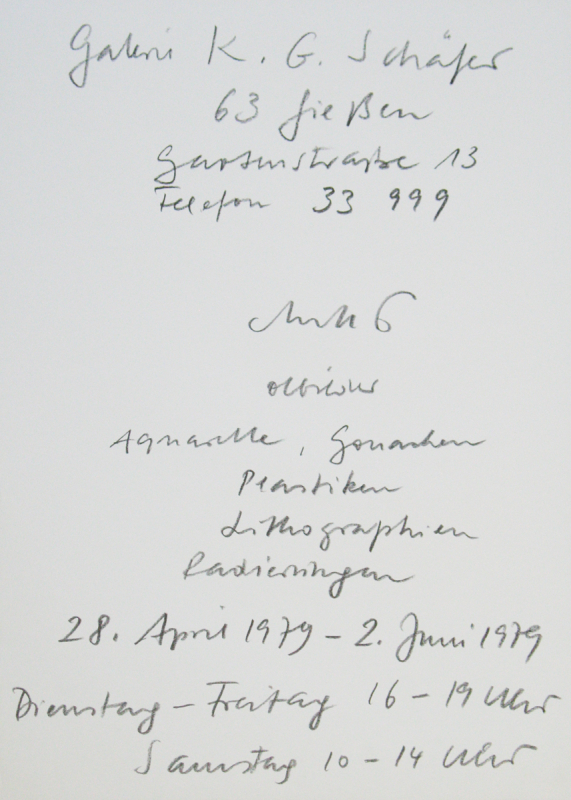 Galerie K. G. Schäfer
63 Gießen
Gartenstraße 13
Telefon 33 999
Ölbilder
Aquarelle, Gouachen
Plastiken
Lithographien
Radierungen
28. April 1979 – 2. Juni 1979
Dienstag – Freitag 16 – 19 Uhr
Samstag 10 – 14 Uhr